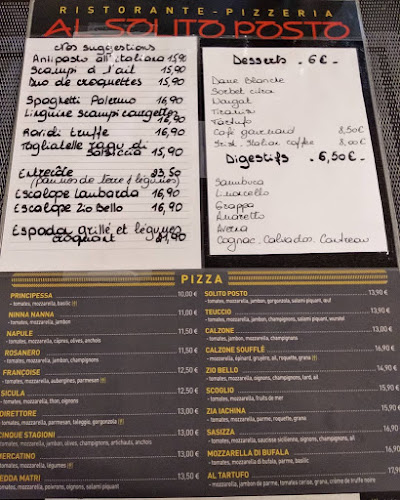 RISTORANTE-PIZZERIA
AL SOLITO POSTO
Nos suggestions
Antipasto all'italiana 15,90
Scampi à l'ail 15,90
Duo de croquettes 15,90
Spaghetti Palermo 16,90
Linguine scampi courgettes 16,90
Ravioli truffe 16,90
Tagliatelle ragu di salsiccia 15,90
Entrecôte 23,50
(pommes de terre & légumes)
Escalope Lombarda 16,90
Escalope Zio Bello 16,90
Espadon grillé et légumes
croquant 21,90
Desserts . 6€ .
Dame Blanche
Sorbet citron
Nougat
Tiramisu
Tartufo
Café gourmand 8,50€
Irish, Italian coffee 8,00€
Digestifs . 6,50€ .
Sambuca
Limoncello
Grappa
Amaretto
Averna
Cognac, Calvados, Cointreau
PIZZA
PRINCIPESSA 10,00 €
- tomates, mozzarella, basilic
NINNA NANNA 11,00 €
- tomates, mozzarella, jambon
NAPULE 11,50 €
- tomates, mozzarella, câpres, olives, anchois
ROSANERO 11,50 €
- tomates, mozzarella, jambon, champignons
FRANÇOISE 12,50 €
- tomates, mozzarella, aubergines, parmesan
SICULA 12,50 €
- tomates, mozzarella, thon, oignons
DIRETTORE 13,00 €
- tomates, mozzarella, parmesan, taleggio, gorgonzola
CINQUE STAGIONI 13,00 €
- tomates, mozzarella, jambon, olives, champignons, artichauts, anchois
MERCATINO 13,00 €
- tomates, mozzarella, légumes
BEDDA MATRI 13,50 €
- tomates, mozzarella, poivrons, oignons, salami piquant
SOLITO POSTO 13,90 €
- tomates, mozzarella, jambon, gorgonzola, salami piquant, œuf
TEUCCIO 13,90 €
- tomates, mozzarella, jambon, champignons, salami piquant, wurstel
CALZONE 13,00 €
- tomates, mozzarella, jambon, champignons
CALZONE SOUFFLÉ 16,90 €
- mozzarella, épinard, gruyère, ail, roquette, grana
ZIO BELLO 14,90 €
- tomates, mozzarella, oignons, champignons, lard, ail
SCOGLIO 15,90 €
- tomates, mozzarella, fruits de mer
ZIA IACHINA 15,90 €
- tomates, mozzarella, parme, roquette, grana
SASIZZA 15,90 €
- tomates, mozzarella, saucisse sicilienne, oignons, champignons, ail
MOZZARELLA DI BUFALA 16,90 €
- tomates, mozzarella di bufala, parme, basilic
AL TARTUFO 17,90 €
- mozzarella, jambon de parme, tomates cerise, grana, crème de truffe noire